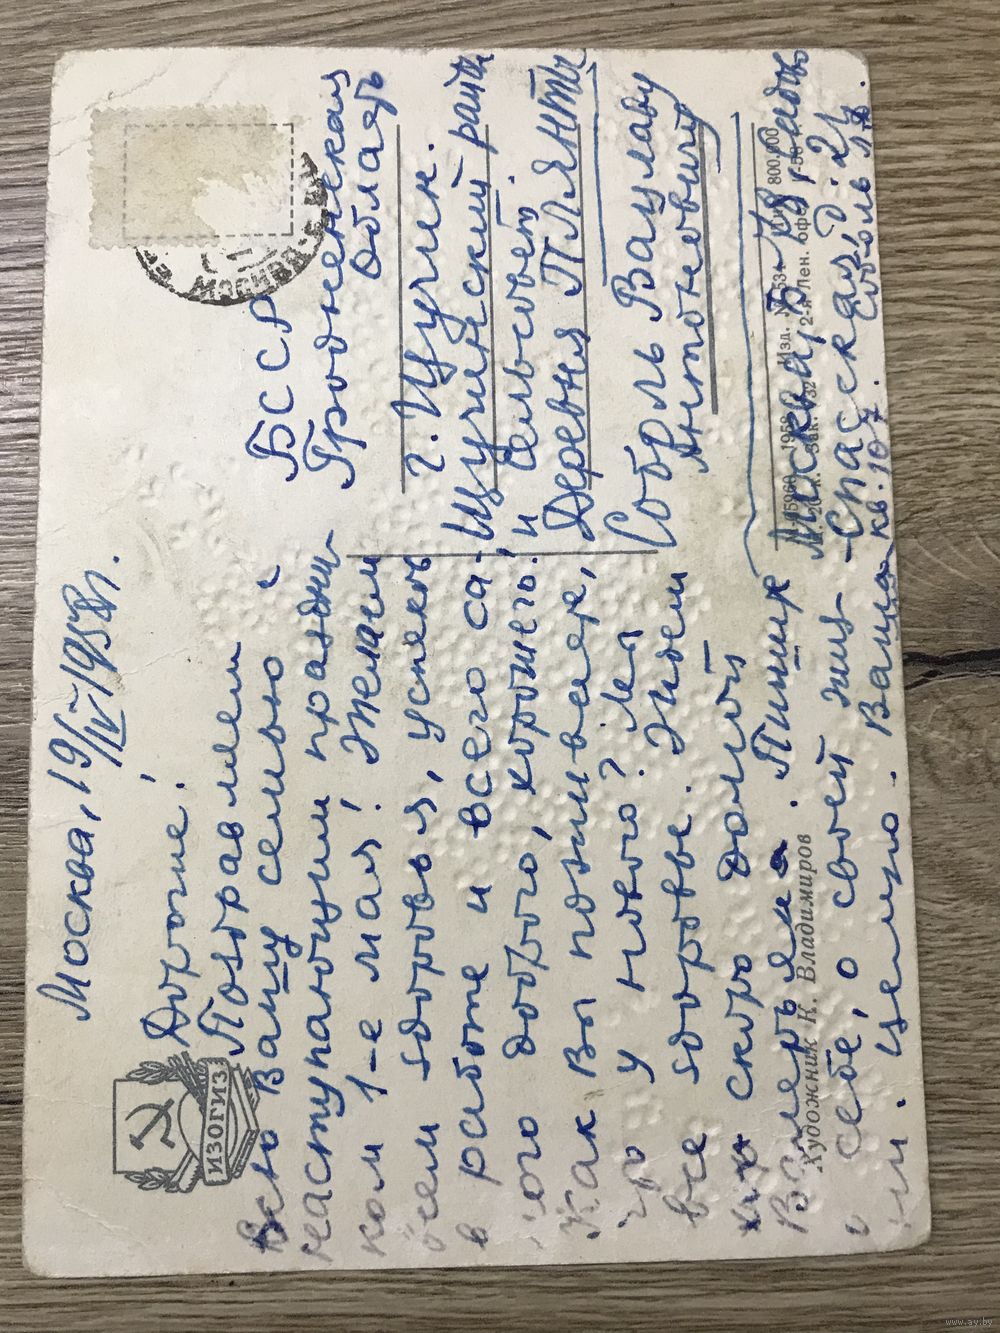 Москва, 19/IV-1958г.
Дорогие!
Поздравляем
всю Вашу семью с
наступающим праздни-
ком 1-е мая! Желаем
всем здоровья, успехов
в работе и всего са-
мого доброго, хорошего.
Как Вы поживаете,
что у нового? Мы
все здоровы. Ждем
скоро домой
Валерьяна. Пишите
о себе, о своей жиз-
ни. Целую. Ваша
ИЗОГИЗ
МОСКВА
БССР
Гродненская
область
г. Щучин.
Щучинский район
и сельсовет.
Деревня ПЛЯНТЫ
Соболь Вацлаву
Антоновичу
Москва, Б-78 
Ново-Спасская, д. 21
кв. 10. Соболь
Художник К. Владимиров
1958 Изд. № 800.000
Зак. 732 2-я Лен. офс
www.ay.by